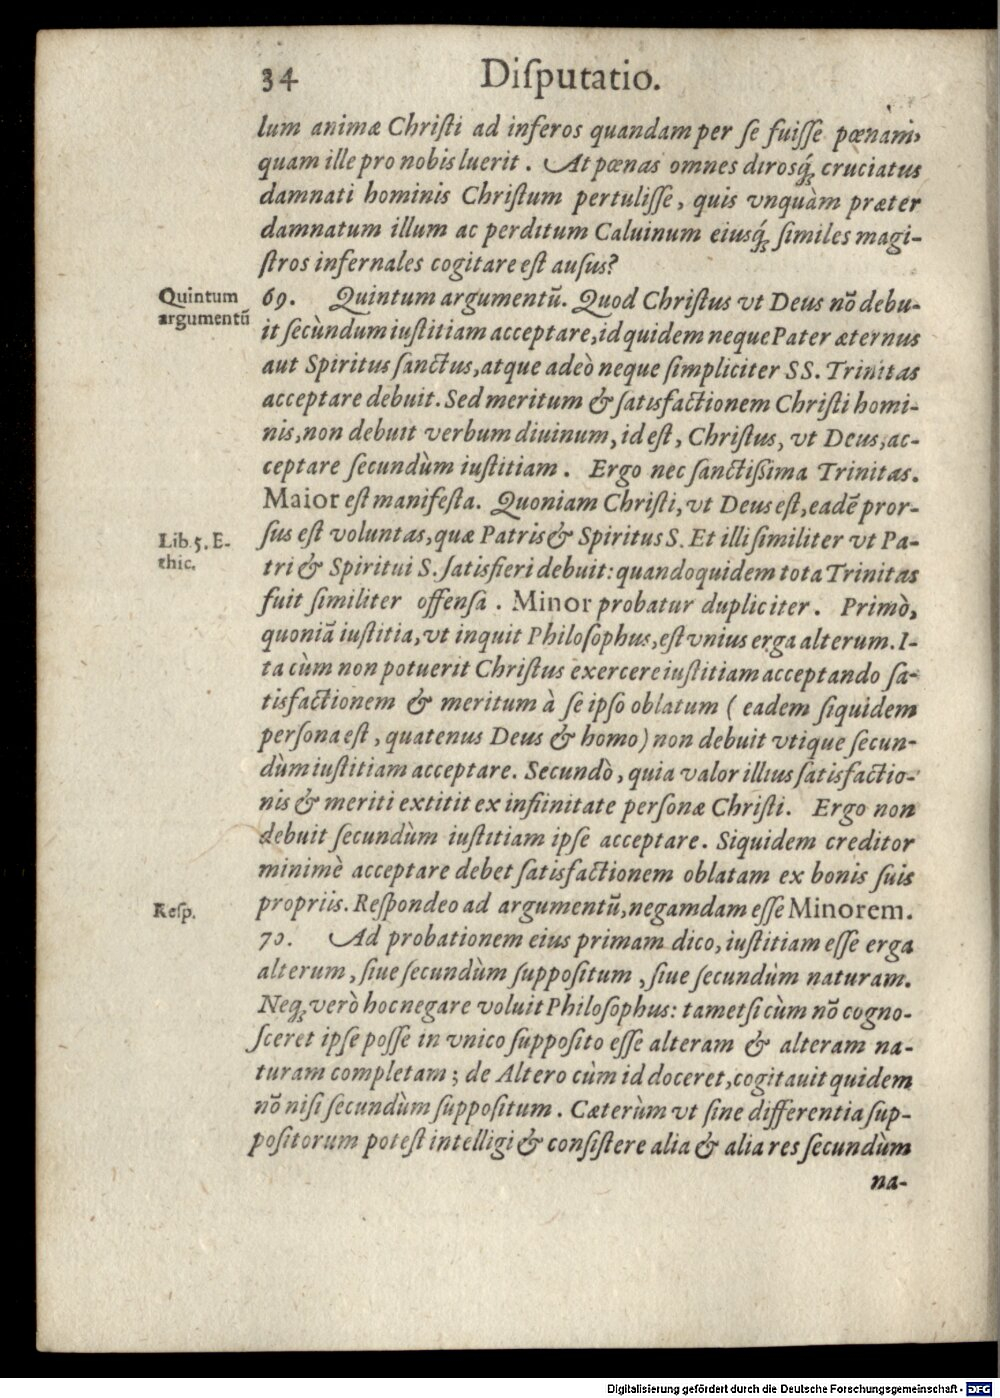 34 Diſputatio.
lum animæ Chriſti ad inferos quandam per ſe fuiſſe pœnam,
quam ille pro nobis luerit. At pœnas omnes dirosq́; cruciatus
damnati hominis Chriſtum pertuliſſe, quis vnquàm præter
damnatum illum ac perditum Caluinum eiusq́; ſimiles magi-
ſtros infernales cogitare eſt auſus?
Quintum
argumentū
69. Quintum argumentū. Quod Chriſtus vt Deus nō debu-
it ſecùndum iuſtitiam acceptare, id quidem neque Pater æternus
aut Spiritus ſanctus, atque adeò neque ſimpliciter SS. Trinitas
acceptare debuit. Sed meritum & ſatisfactionem Chriſti homi-
nis, non debuit verbum diuinum, id eſt, Chriſtus, vt Deus, ac-
ceptare ſecundùm iuſtitiam. Ergo nec ſanctiſsima Trinitas.
Maior eſt manifeſta. Quoniam Chriſti, vt Deus eſt, eadē pror-
Lib. 5. E-
thic.
ſus eſt voluntas, quæ Patris & Spiritus S. Et illi ſimiliter vt Pa-
tri & Spiritui S. ſatisfieri debuit: quandoquidem tota Trinitas
fuit ſimiliter offenſa. Minor probatur dupliciter. Primò,
quoniā iuſtitia, vt inquit Philoſophus, eſt vnius erga alterum. I-
ta cùm non potuerit Chriſtus exercere iuſtitiam acceptando ſa-
tisfactionem & meritum à ſe ipſo oblatum ( eadem ſiquidem
perſona eſt, quatenus Deus & homo) non debuit vtique ſecun-
dùm iuſtitiam acceptare. Secundò, quia valor illius ſatisfactio-
nis & meriti extitit ex infiinitate perſonæ Chriſti. Ergo non
debuit ſecundùm iuſtitiam ipſe acceptare. Siquidem creditor
minimè acceptare debet ſatisfactionem oblatam ex bonis ſuis
Reſp.
propriis. Reſpondeo ad argumentū, negamdam eſſe Minorem.
70. Ad probationem eius primam dico, iuſtitiam eſſe erga
alterum, ſiue ſecundùm ſuppoſitum, ſiue ſecundùm naturam.
Neq; verò hoc negare voluit Philoſophus: tametſi cùm nō cogno-
ſceret ipſe poſſe in vnico ſuppoſito eſſe alteram & alteram na-
turam completam; de Altero cùm id doceret, cogitauit quidem
nō niſi ſecundùm ſuppoſitum. Cæterùm vt ſine differentia ſup-
poſitorum poteſt intelligi & conſiſtere alia & alia res ſecundùm
na-
Digitalisierung gefördert durch die Deutsche Forschungsgemeinschaft - DFG